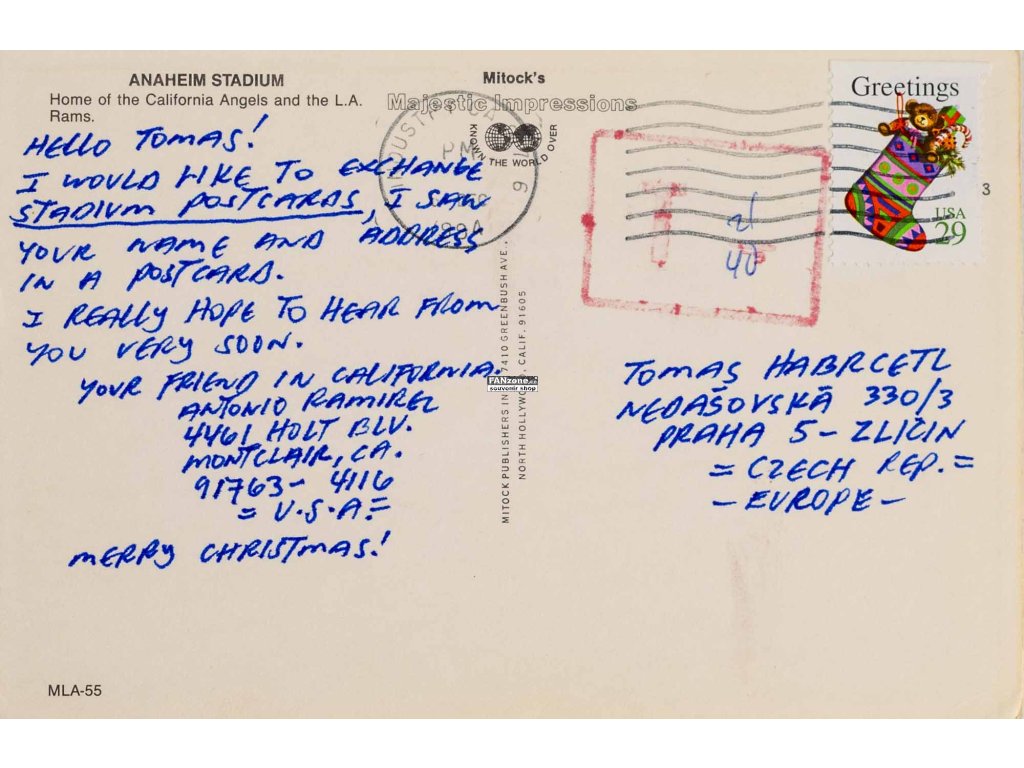 ANAHEIM STADIUM
Home of the California Angels and the L.A.
Rams.
HELLO TOMAS!
I WOULD LIKE TO EXCHANGE
STADIUM POSTCARDS, I SAW
YOUR NAME AND ADDRESS
IN A POSTCARD.
I REALLY HOPE TO HEAR FROM
YOU VERY SOON.
YOUR FRIEND IN CALIFORNIA.
ANTONIO RAMIREZ
4461 HOLT BLV.
MONTCLAIR, CA.
91763-4116
= U.S.A =
MERRY CHRISTMAS!
MLA-55
Mitock's
Majestic Impressions
KNOWN THE WORLD OVER
PM
1994
MITOCK PUBLISHERS INC. 7410 GREENBUSH AVE.,
NORTH HOLLYWOOD, CALIF. 91605
FANzone.cz
souvenir shop
Greetings
USA
29
3
40
TOMAS HABRCETL
NEDAŠOVSKÁ 330/3
PRAHA 5 - ZLIČIN
= CZECH REP. =
- EUROPE -